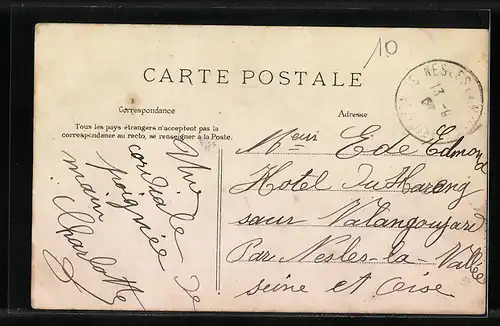 10
CARTE POSTALE
Correspondance
Adresse
Tous les pays étrangers n'acceptent pas la
correspondance au recto, se renseigner à la Poste.
NESLES
13 -8
Une
cordiale
poignée de
main
Charlotte
Meur Ede Edmond
Hotel du Hareng
saur Valangoujard
Par Nesles-la-Vallée
Seine et Oise